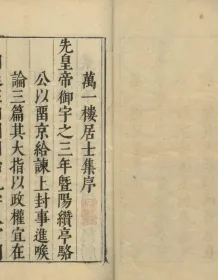 萬一樓居士集序
先皇帝御宇之三年暨陽纘亭駱
公以留京給諫上封事進喉
論三篇其大指以政權宜在